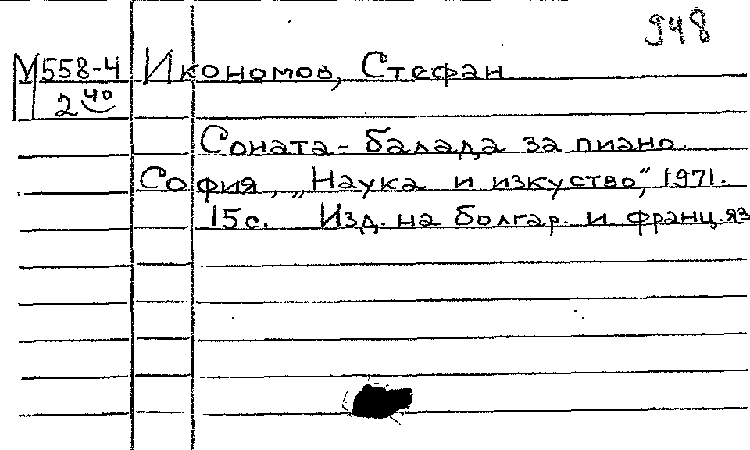 948
М558-4 Икономов, Стефан
2 40
Соната-балада за пиано.
София, „Наука и изкуство", 1971.
15с. Изд. на болгар. и франц. яз